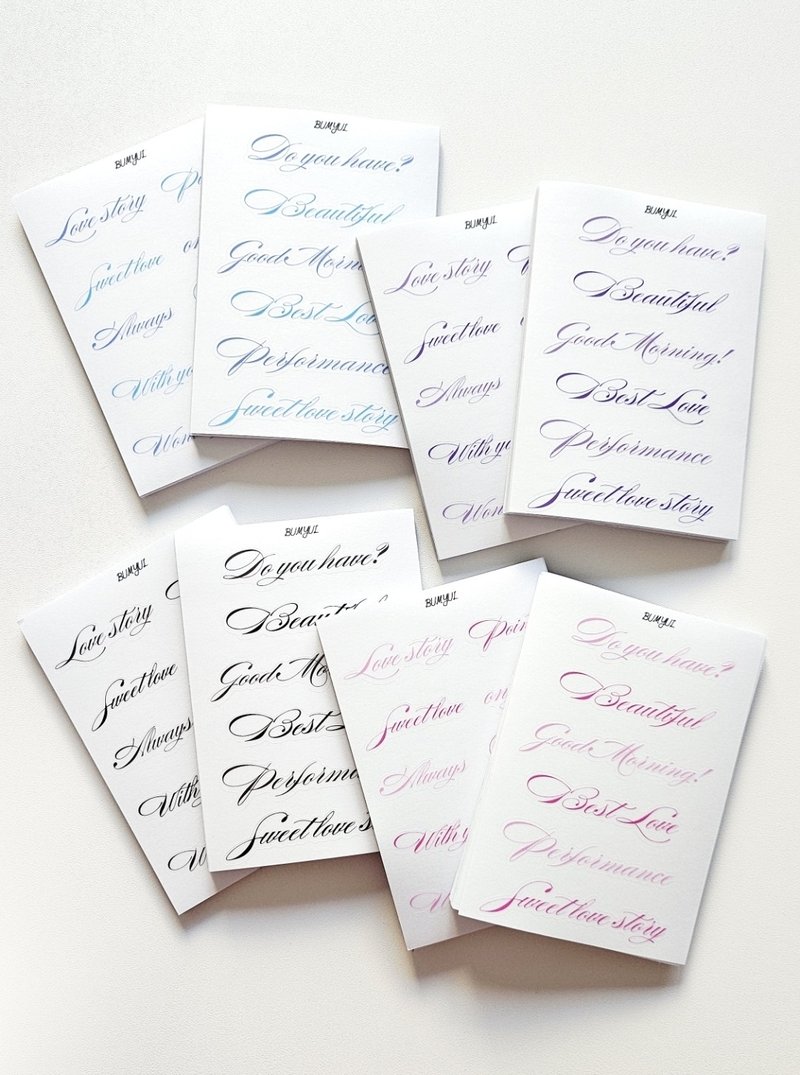 BUMYUL
Love story
Sweet love on
Always
With yo
Won
BUMYUL
Do you have?
Beautiful
Good Morn
Best Lov
Performance
Sweet love story
BUMYUL
Love story
Sweet love on
Always
With yo
Won
BUMYUL
Do you have?
Beautiful
Good Morning!
Best Love
Performance
Sweet love story
BUMYUL
Love story
Sweet love
Always
With
W
BUMYUL
Do you have?
Beautif
Good Mo
Best L
Performa
Sweet love s
BUMYUL
Love story Poin
Sweet love on
Always
With y
W
BUMYUL
Do you have?
Beautiful
Good Morning!
Best Love
Performance
Sweet love story